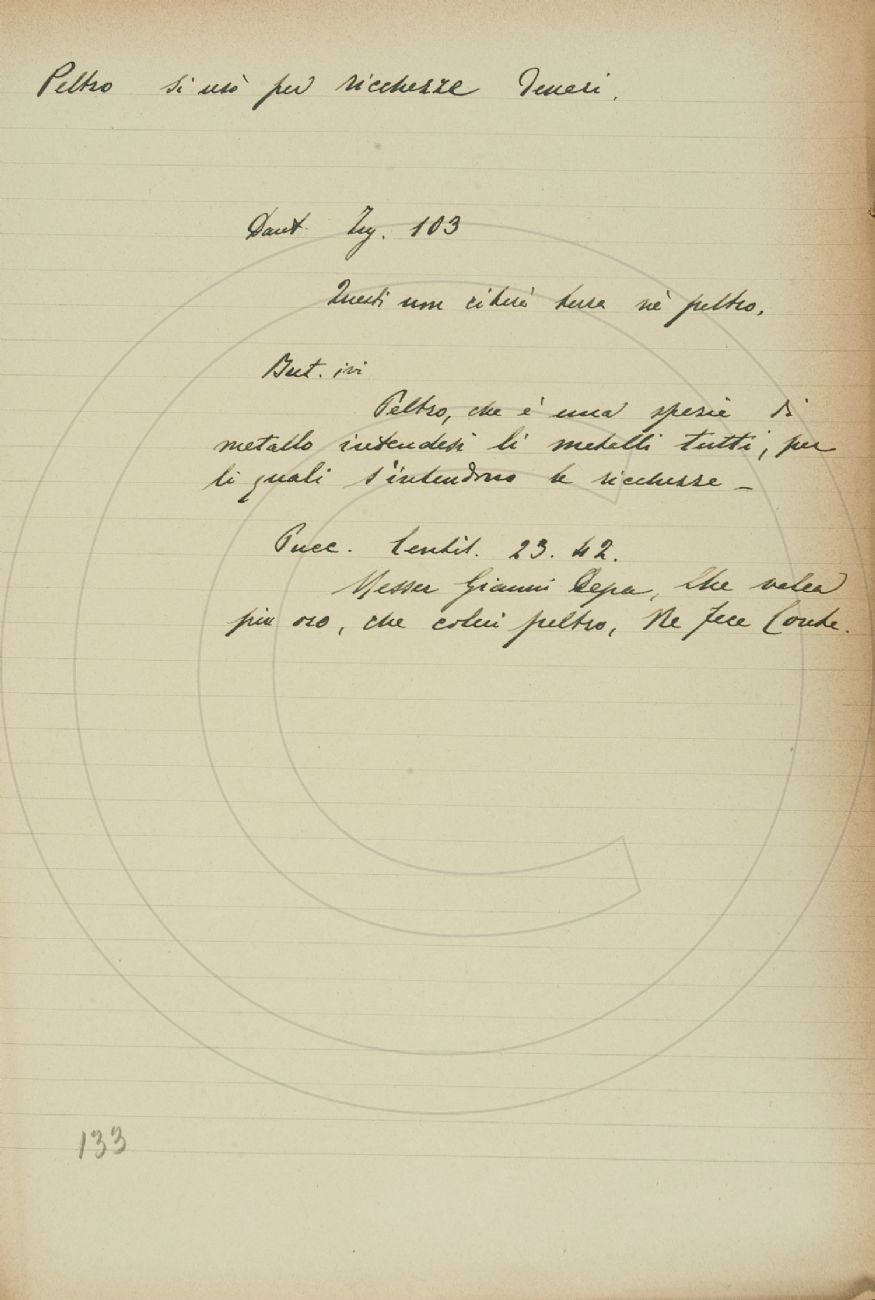 Peltro si usò per ricchezze Teneri.
Dant Inf. 103
Questi non ciberà terra nè peltro.
But. ivi
Peltro, che è una spezie di
metallo intendesi li metalli tutti, per
li quali s'intendono le ricchezze –
Pucc. Centil. 23. 42.
Messer Gianni Depa, Che valea
piu oro, che colui peltro, Ne fece Conte.
133